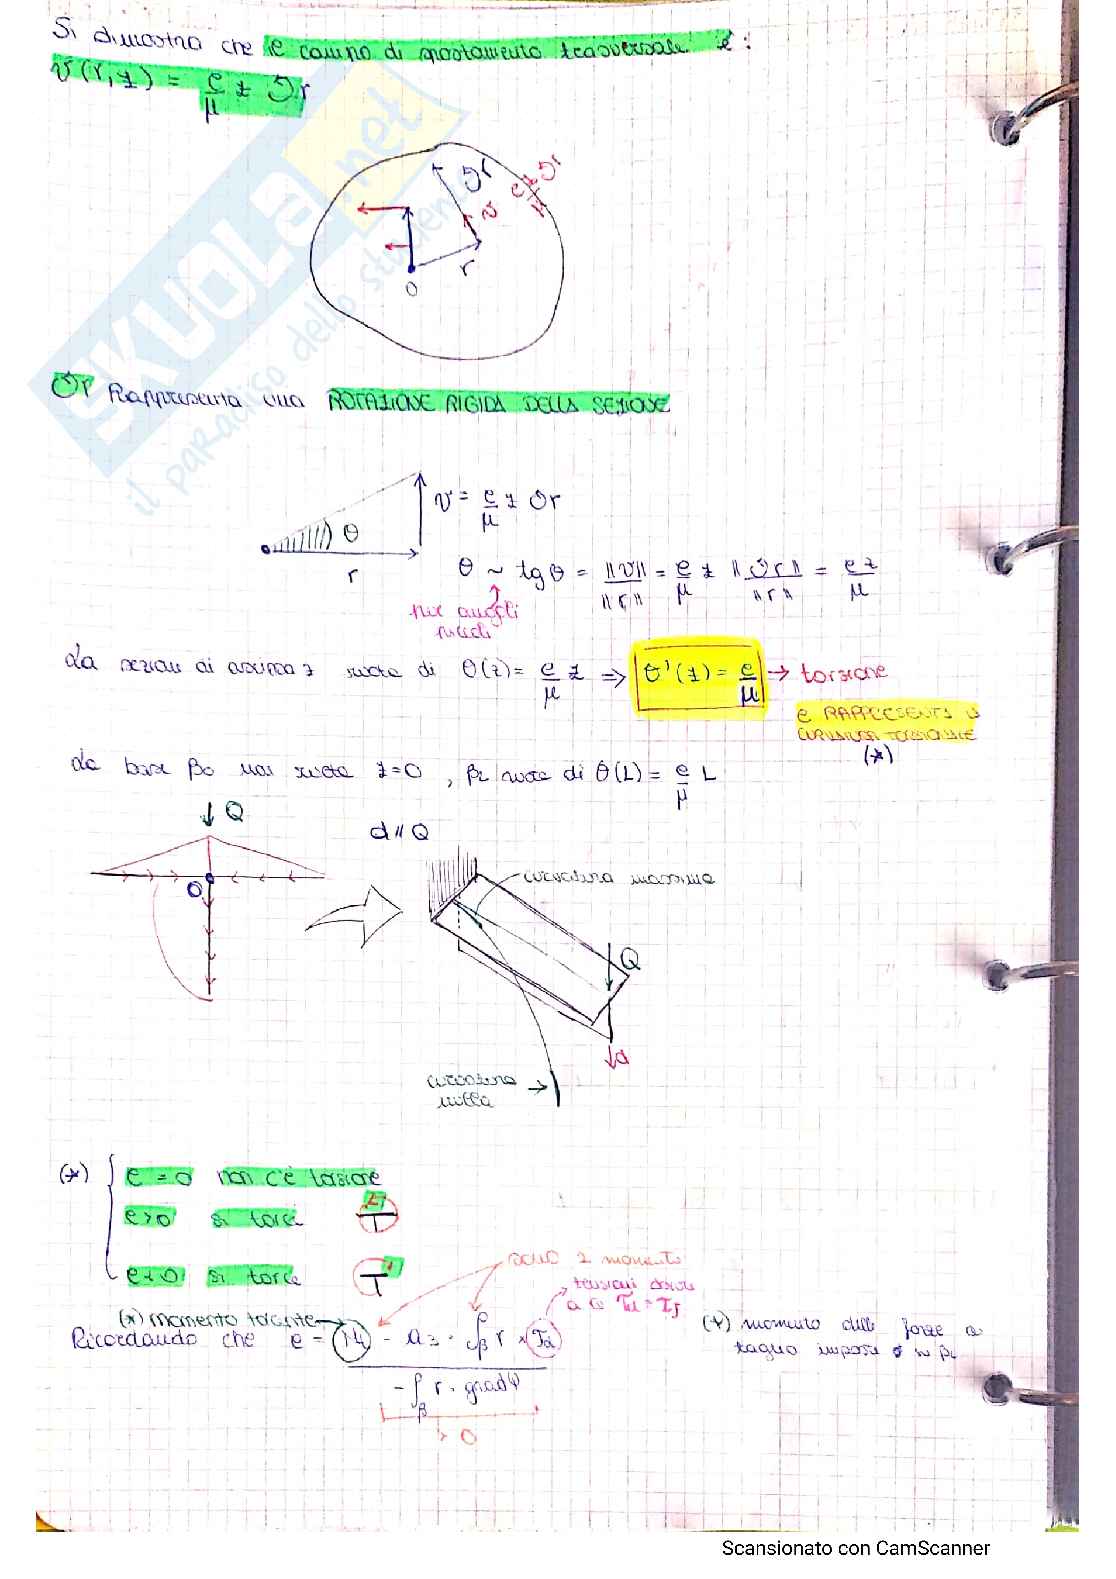 Si dimostra che il campo di spostamento trasversale è:
v(r,z) = e/μ z Ɔr
Ɔr
v
e/μ z Ɔr
r
O
Ɔr Rappresenta una ROTAZIONE RIGIDA DELLA SEZIONE
v = e/μ z Ɔr
θ
r
θ ~ tgθ = ||v||/||r|| = e/μ z ||Ɔr||/||r|| = e z/μ
per angoli
piccoli
La sezione di ascissa z ruota di θ(z) = e/μ z ⇒ θ'(z) = e/μ → torsione
e RAPPRESENTA LA
CURVATURA TORSIONALE
(*)
La base β0 non ruota z=0 , βL ruota di θ(L) = e/μ L
Q
d // Q
O
curvatura massima
Q
d
curvatura
nulla
(*) e = 0 non c'è torsione
e>0 si torce
e<0 si torce
sono 2 momenti
tensioni dovute
(*) momento torcente
Ricordando che e =
- ∫β r · gradψ
> 0
(*) momento delle forze a
taglio imposte in βL
SKUOLA.net
il paradiso dello studente
Scansionato con CamScanner